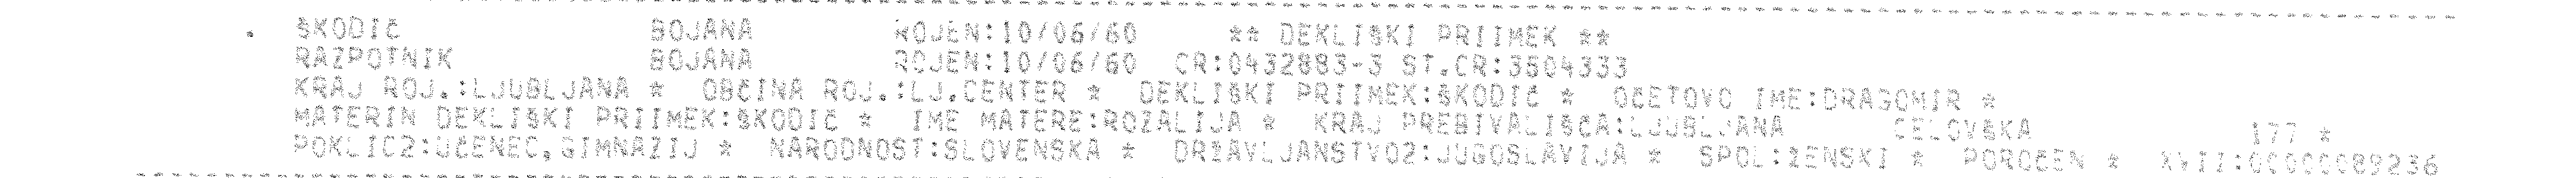 . ŠKODIČ BOJANA ROJEN:10/06/60 ** DEKLIŠKI PRIIMEK **
RAZPOTNIK BOJANA ROJEN:10/06/60 CR:0432883-3 ST.CR:3504333
KRAJ ROJ.:LJUBLJANA * OBČINA ROJ.:LJ.CENTER * DEKLIŠKI PRIIMEK:ŠKODIČ * OČETOVO IME:DRAGOMIR *
MATERIN DEKLIŠKI PRIIMEK:ŠKODIČ * IME MATERE:ROZALIJA * KRAJ PREBIVALIŠČA:LJUBLJANA CELOVŠKA 177 *
POKLIC2:UČENEC,GIMNAZIJ * NARODNOST:SLOVENSKA * DRŽAVLJANSTVO2:JUGOSLAVIJA * SPOL:ŽENSKI * POROČEN *